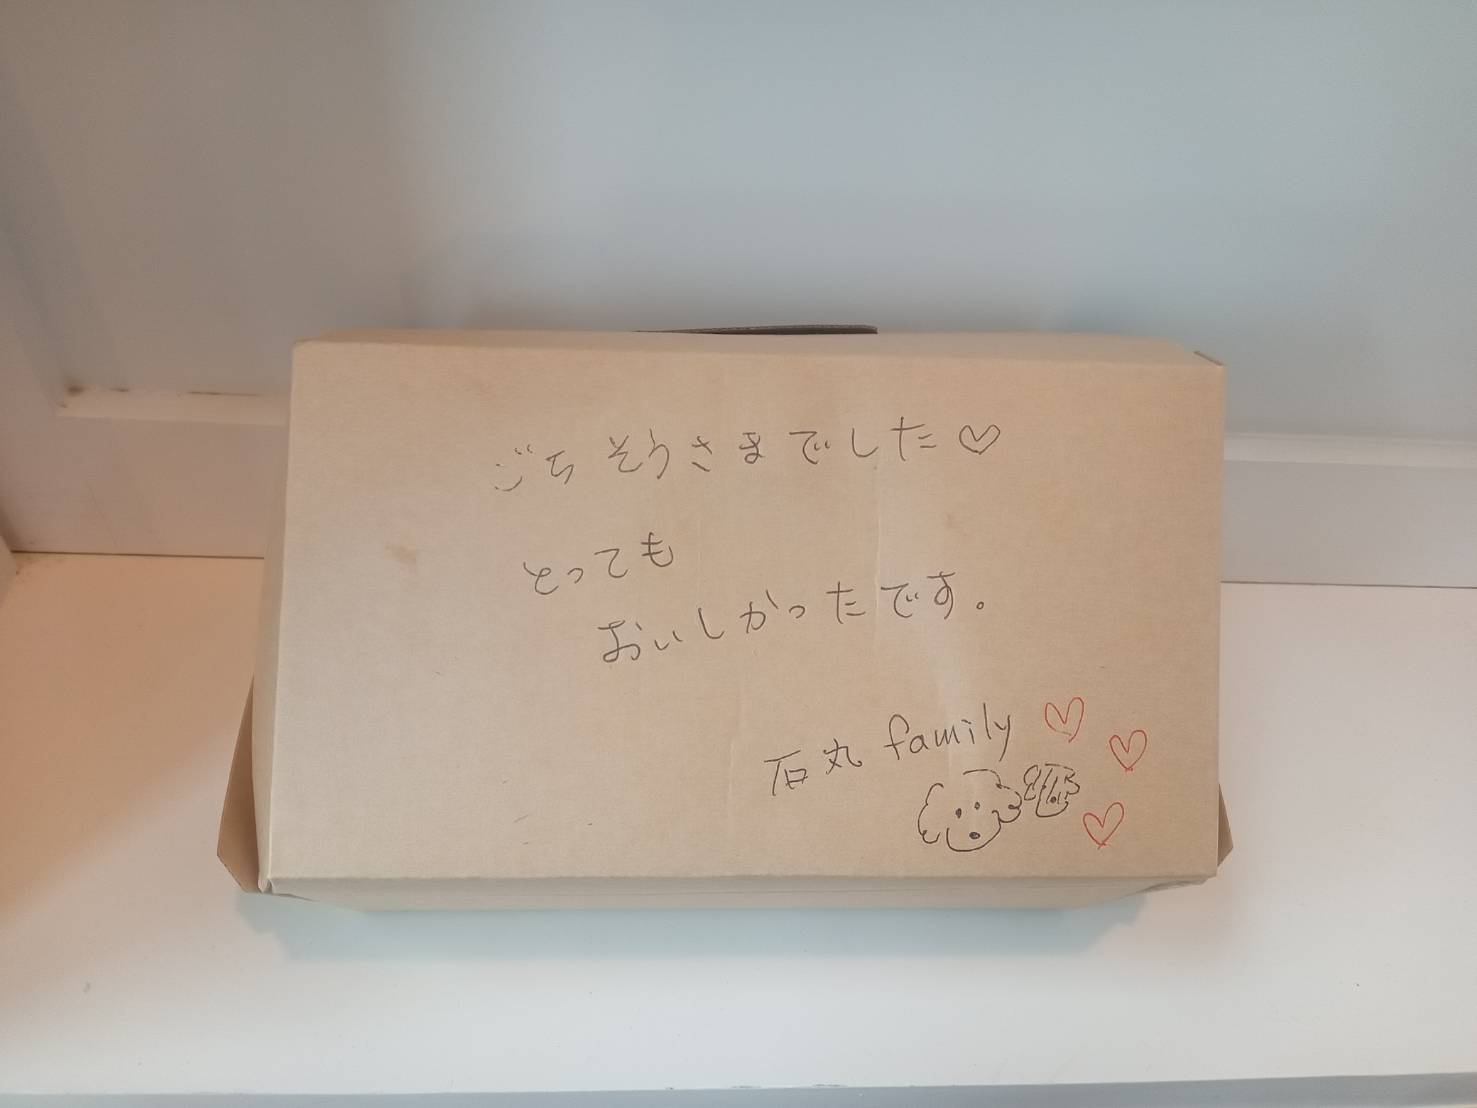 ごちそうさまでした♡
とっても
おいしかったです。
石丸 family